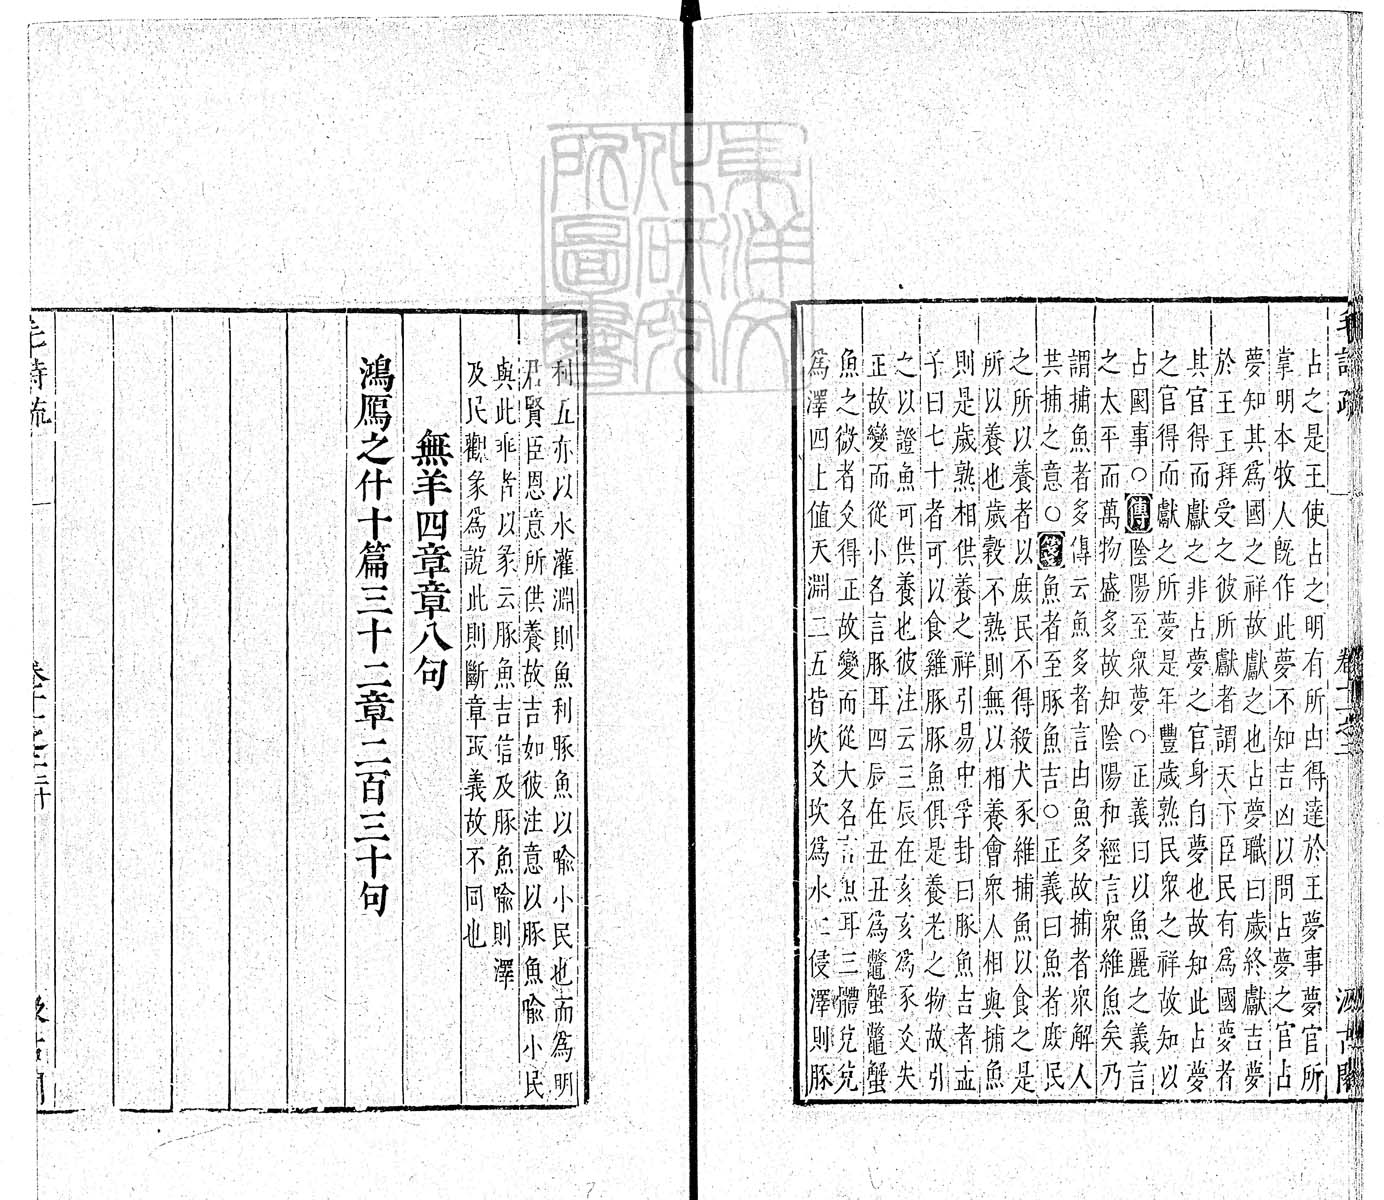 毛詩疏 卷十一之二 汲古閣
占之是王使占之明有所占得達於王夢事夢官所
掌明本牧人旣作此夢不知吉凶以問占夢之官占
夢知其爲國之祥故獻之也占夢職曰歲終獻吉夢
於王王拜受之彼所獻者謂天下臣民有爲國夢者
其官得而獻之非占夢之官身自夢也故知此占夢
之官得而獻之所夢是年豐歲熟民衆之祥故知以
占國事○傳陰陽至衆夢○正義曰以魚麗之義言
之太平而萬物盛多故知陰陽和經言衆維魚矣乃
謂捕魚者多傳云魚多者言由魚多故捕者衆解人
共捕之意○箋魚者至豚魚吉○正義曰魚者庶民
之所以養者以庶民不得殺犬豕維捕魚以食之是
所以養也歲穀不熟則無以相養會衆人相與捕魚
則是歲熟相供養之祥引易中孚卦曰豚魚吉者孟
子曰七十者可以食雞豚豚魚俱是養老之物故引
之以證魚可供養也彼注云三辰在亥亥爲豕爻失
正故變而從小名言豚耳四辰在丑丑爲鼈蟹鼈蟹
魚之微者爻得正故變而從大名言魚耳三體兌兌
爲澤四上值天淵二五皆坎爻坎爲水二侵澤則豚
利五亦以水灌淵則魚利豚魚以喻小民也而爲明
君賢臣恩意所供養故吉如彼注意以豚魚喻小民
與此乖者以彖云豚魚吉信及豚魚喻則澤
及民觀象爲說此則斷章取義故不同也
無羊四章章八句
鴻鴈之什十篇三十二章二百三十句
毛詩疏 卷十一之二 二十 汲古閣
東洋文化研究所圖書